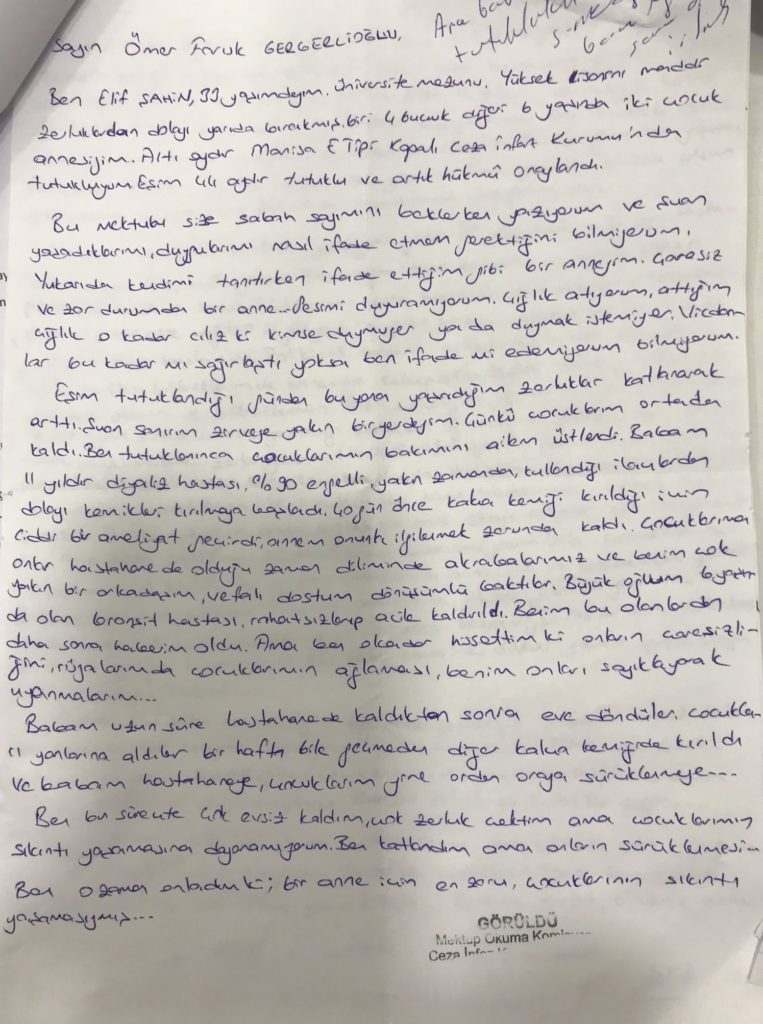 Sayın Ömer Faruk GERGERLİOĞLU,
Ana bab
tutuklulu
Ben Elif ŞAHİN, 33 yaşımdayım. Üniversite mezunu, Yüksek lisansını maddi
zorluklardan dolayı yarıda bırakmış, biri 4 buçuk diğeri 6 yaşında iki çocuk
annesiyim. Altı aydır Manisa E Tipi Kapalı Ceza İnfaz Kurumu'nda
tutukluyum. Eşim 44 aydır tutuklu ve artık hükmü onaylandı.
Bu mektubu size sabah sayımını beklerken yazıyorum ve şuan
yaşadıklarımı, duygularımı nasıl ifade etmem gerektiğini bilmiyorum.
Yukarıda kendimi tanıtırken ifade ettiğim gibi bir anneyim. Çaresiz
ve zor durumda bir anne... Sesimi duyuramıyorum. Çığlık atıyorum, attığım
çığlık o kadar cılız ki kimse duymuyor ya da duymak istemiyor. Vicdan
lar bu kadar mı sağırlaştı yoksa ben ifade mi edemiyorum bilmiyorum.
Eşim tutuklandığı günden bu yana yaşadığım zorluklar katlanarak
arttı. Şuan sanırım zirveye yakın bir yerdeyim. Çünkü çocuklarım ortada
kaldı. Ben tutuklanınca çocuklarımın bakımını ailem üstlendi. Babam
11 yıldır diyaliz hastası, %90 engelli, yakın zamanda, kullandığı ilaçlardan
dolayı kemikleri kırılmaya başladı. 40 gün önce kalça kemiği kırıldığı için
ciddi bir ameliyat geçirdi, annem onunla ilgilenmek zorunda kaldı. Çocuklarıma
onlar hastahanede olduğu zaman diliminde akrabalarımız ve benim çok
yakın bir arkadaşım, vefalı dostum dönüşümlü baktılar. Büyük oğlum 6 yaşın
da olan bronşit hastası, rahatsızlanıp acile kaldırıldı. Benim bu olanlardan
daha sonra haberim oldu. Ama ben o kadar hissettim ki onların çaresizli-
ğini, rüyalarımda çocuklarımın ağlaması, benim onları sayıklayarak
uyanmalarım...
Babam uzun süre hastahanede kaldıktan sonra eve döndüler, çocukla-
rı yanlarına aldılar bir hafta bile geçmeden diğer kalça kemiğide kırıldı
ve babam hastahaneye, çocuklarım yine ordan oraya sürüklenmeye...
Ben bu süreçte çok evsiz kaldım, çok zorluk çektim ama çocuklarımın
sıkıntı yaşamasına dayanamıyorum. Ben katlandım ama onların sürüklenmesi...
Ben o zaman anladım ki; bir anne için en zoru, çocuklarının sıkıntı
yaşamasıymış...
GÖRÜLDÜ
Mektup Okuma Komisyon
Ceza İnfa